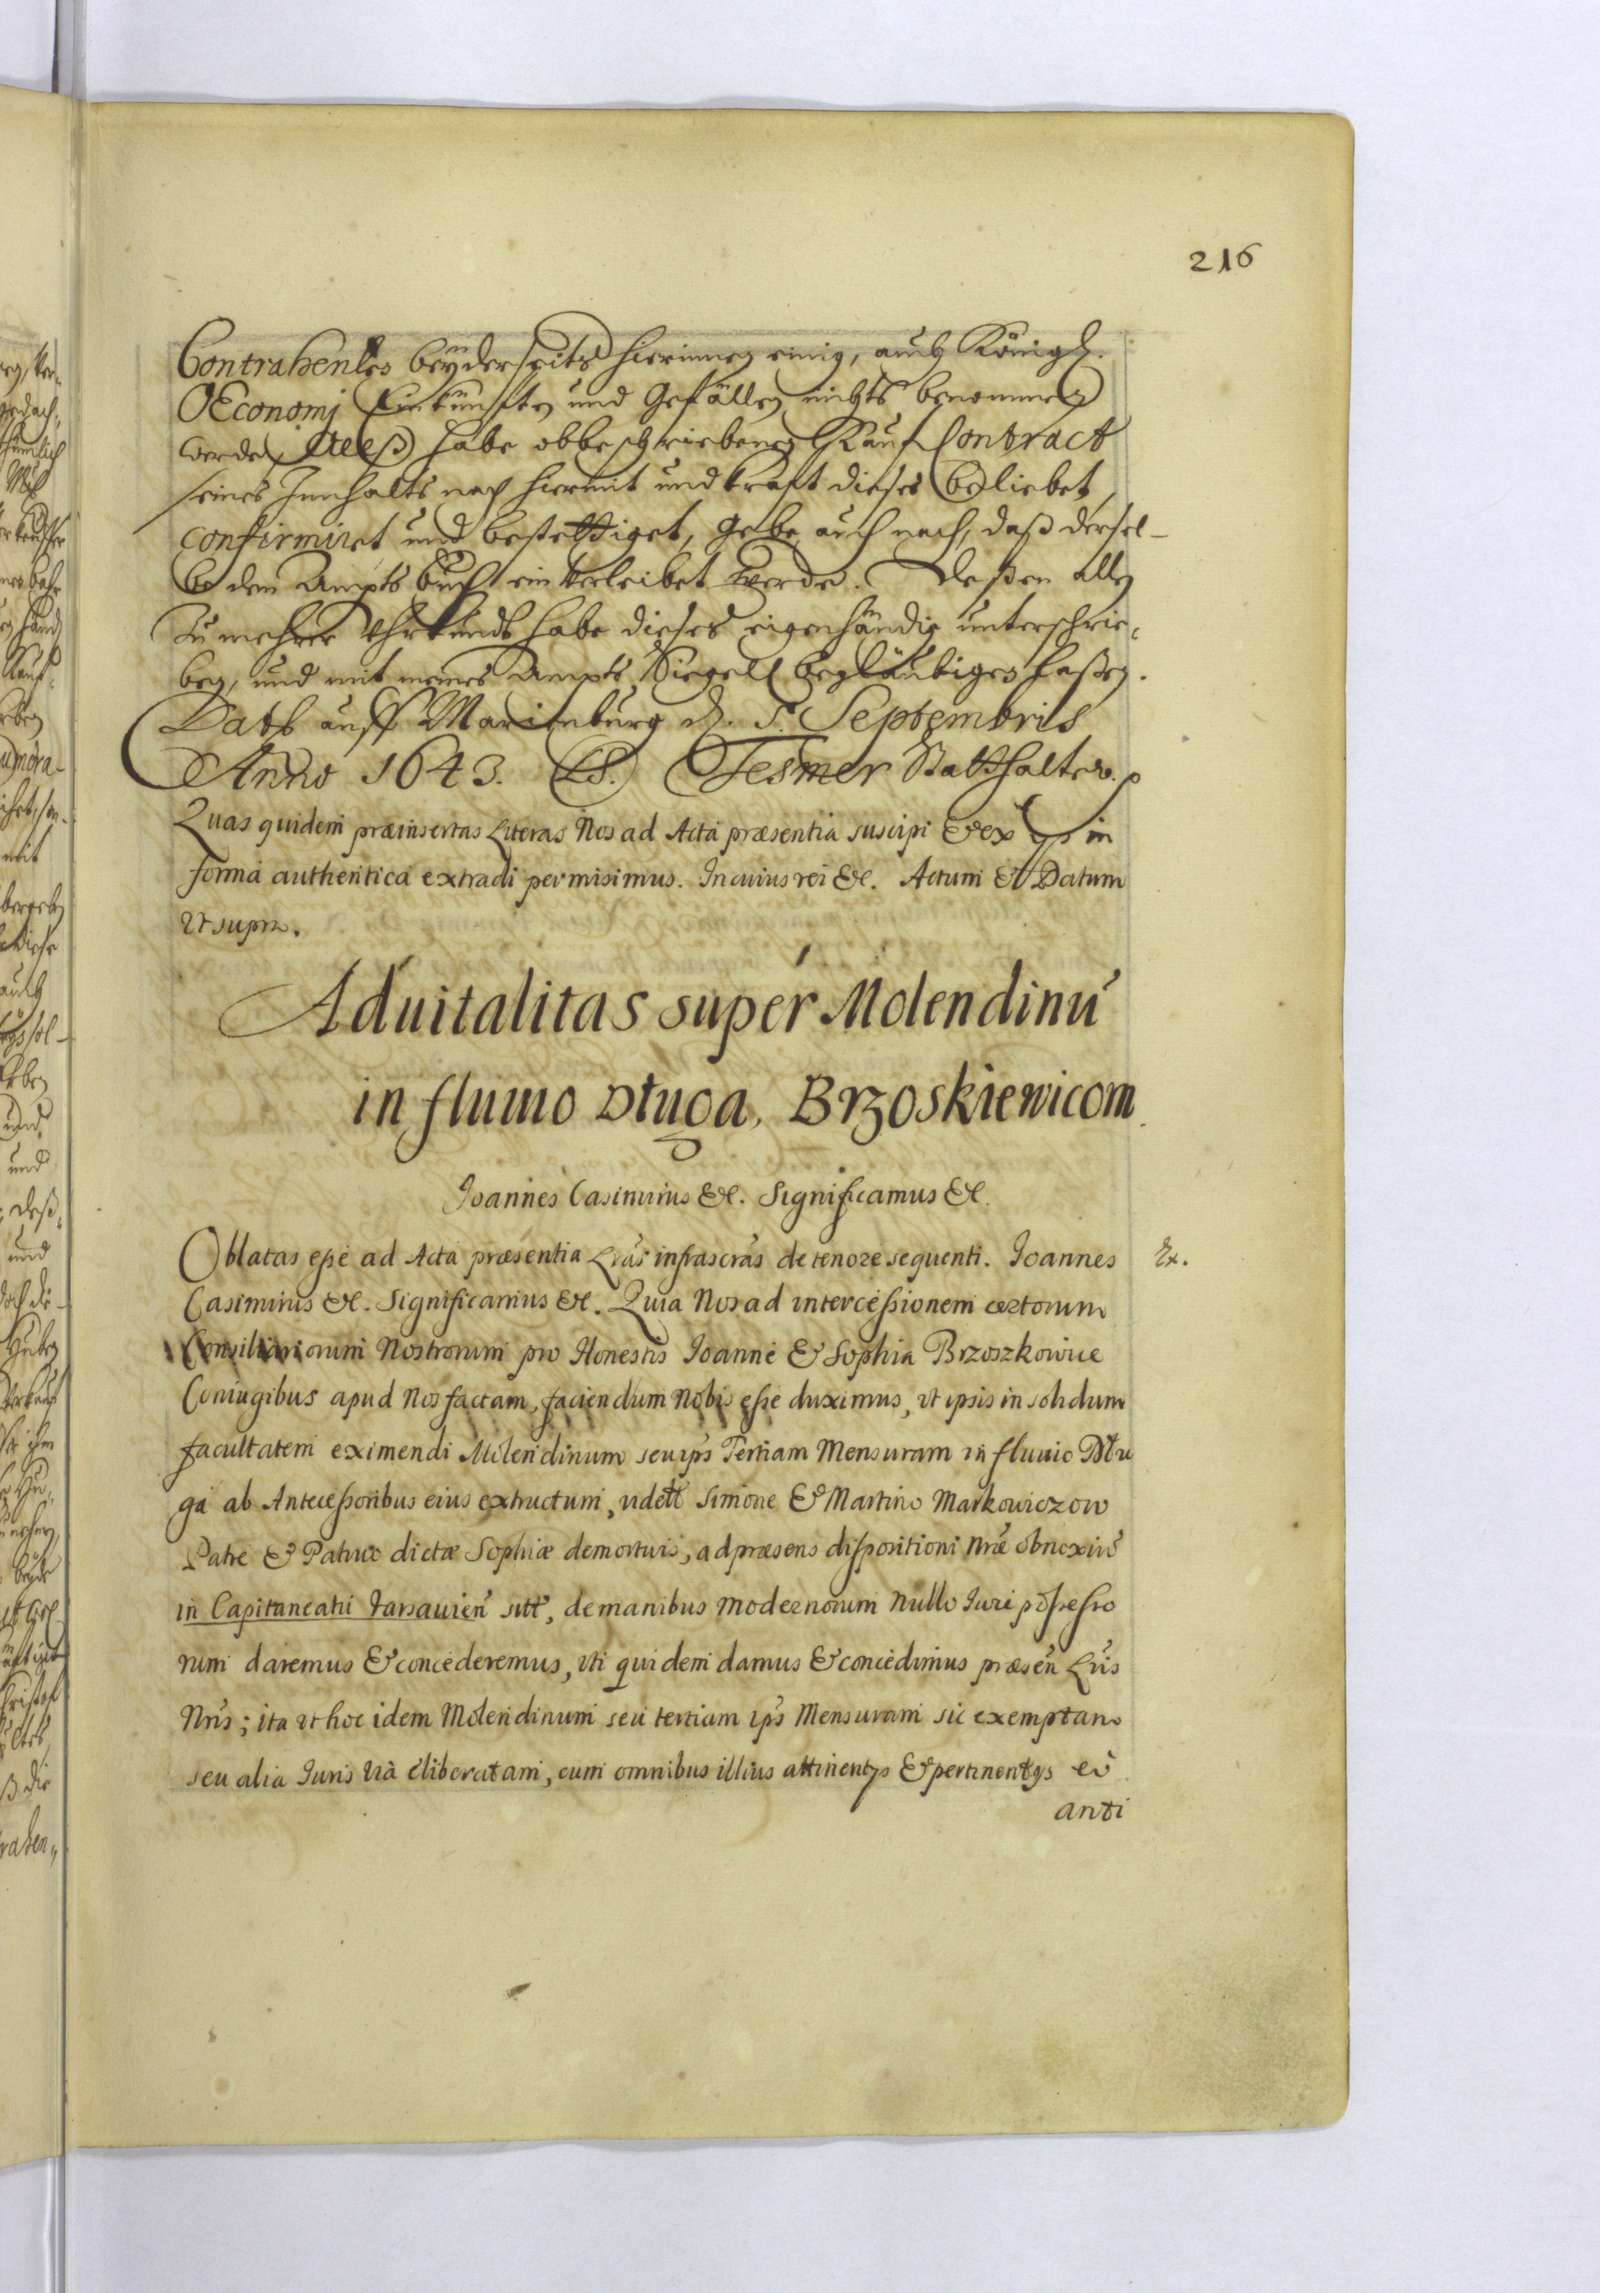 216
Contrahentes beÿderseits hierinnen einig, auch Königl.
OEconomj Einkünften und Gefällen nichts benommen
werde, Alß habe obbeschriebenen Kauf Contract
seines Innhalts nach hiermit und kraft dieses beliebet,
confirmiret und bestettiget, gebe auch nach, daß dersel-
be dem Ampts Buch ein verleibet werde. Deßen allen
Zu mehrer Uhrkundt habe dieses eigenhändig unterschrie-
ben, und mit meines Ampts Siegell beglaubigen laßen.
Datß auff Marienburg d. 5. Septembris
Anno 1643. LS. Tesmer Statthalter.
Quas quidem præinsertas Literas Nos ad Acta præsentia suscipi & ex ijs in
forma authentica extradi permisimus. In cuius rei &c. Actum & Datum
ut supra.
Aduitalitas super Molendinū
in fluuio Długa, Brzoskiewicom
Joannes Casimirus &c. Significamus &c.
Oblatas esse ad Acta præsentia Lrās infrascrās de tenore sequenti. Joannes
Ex.
Casimirus &c. Significamus &c. Quia Nos ad intercessionem certorum
Consiliariorum Nostrorum pro Honestis Joanne & Sophia Brzoszkowice
Coniugibus apud Nos factam, faciendum Nobis esse duximus, ut ipsis in solidum
facultatem eximendi Molendinum seu ips Tertiam Mensuram in fluuio Dłu
ga ab Antecessoribus eius extructum, videlt Simone & Martino Markowiczow
Patre & Patruo dictæ Sophiæ demortuis, ad præsens dispositioni Nræ obnoxiū
in Capitaneatu Varsauien sitū, de manibus modernorum Nullo Jure possesso
rum daremus & concederemus, uti quidem damus & concedimus præsen Lris
Nris; ita ut hoc idem Molendinum seu tertiam ips Mensuram sic exemptam
seu alia Juris via eliberatam, cum omnibus illius attinentijs & pertinentijs eū
anti